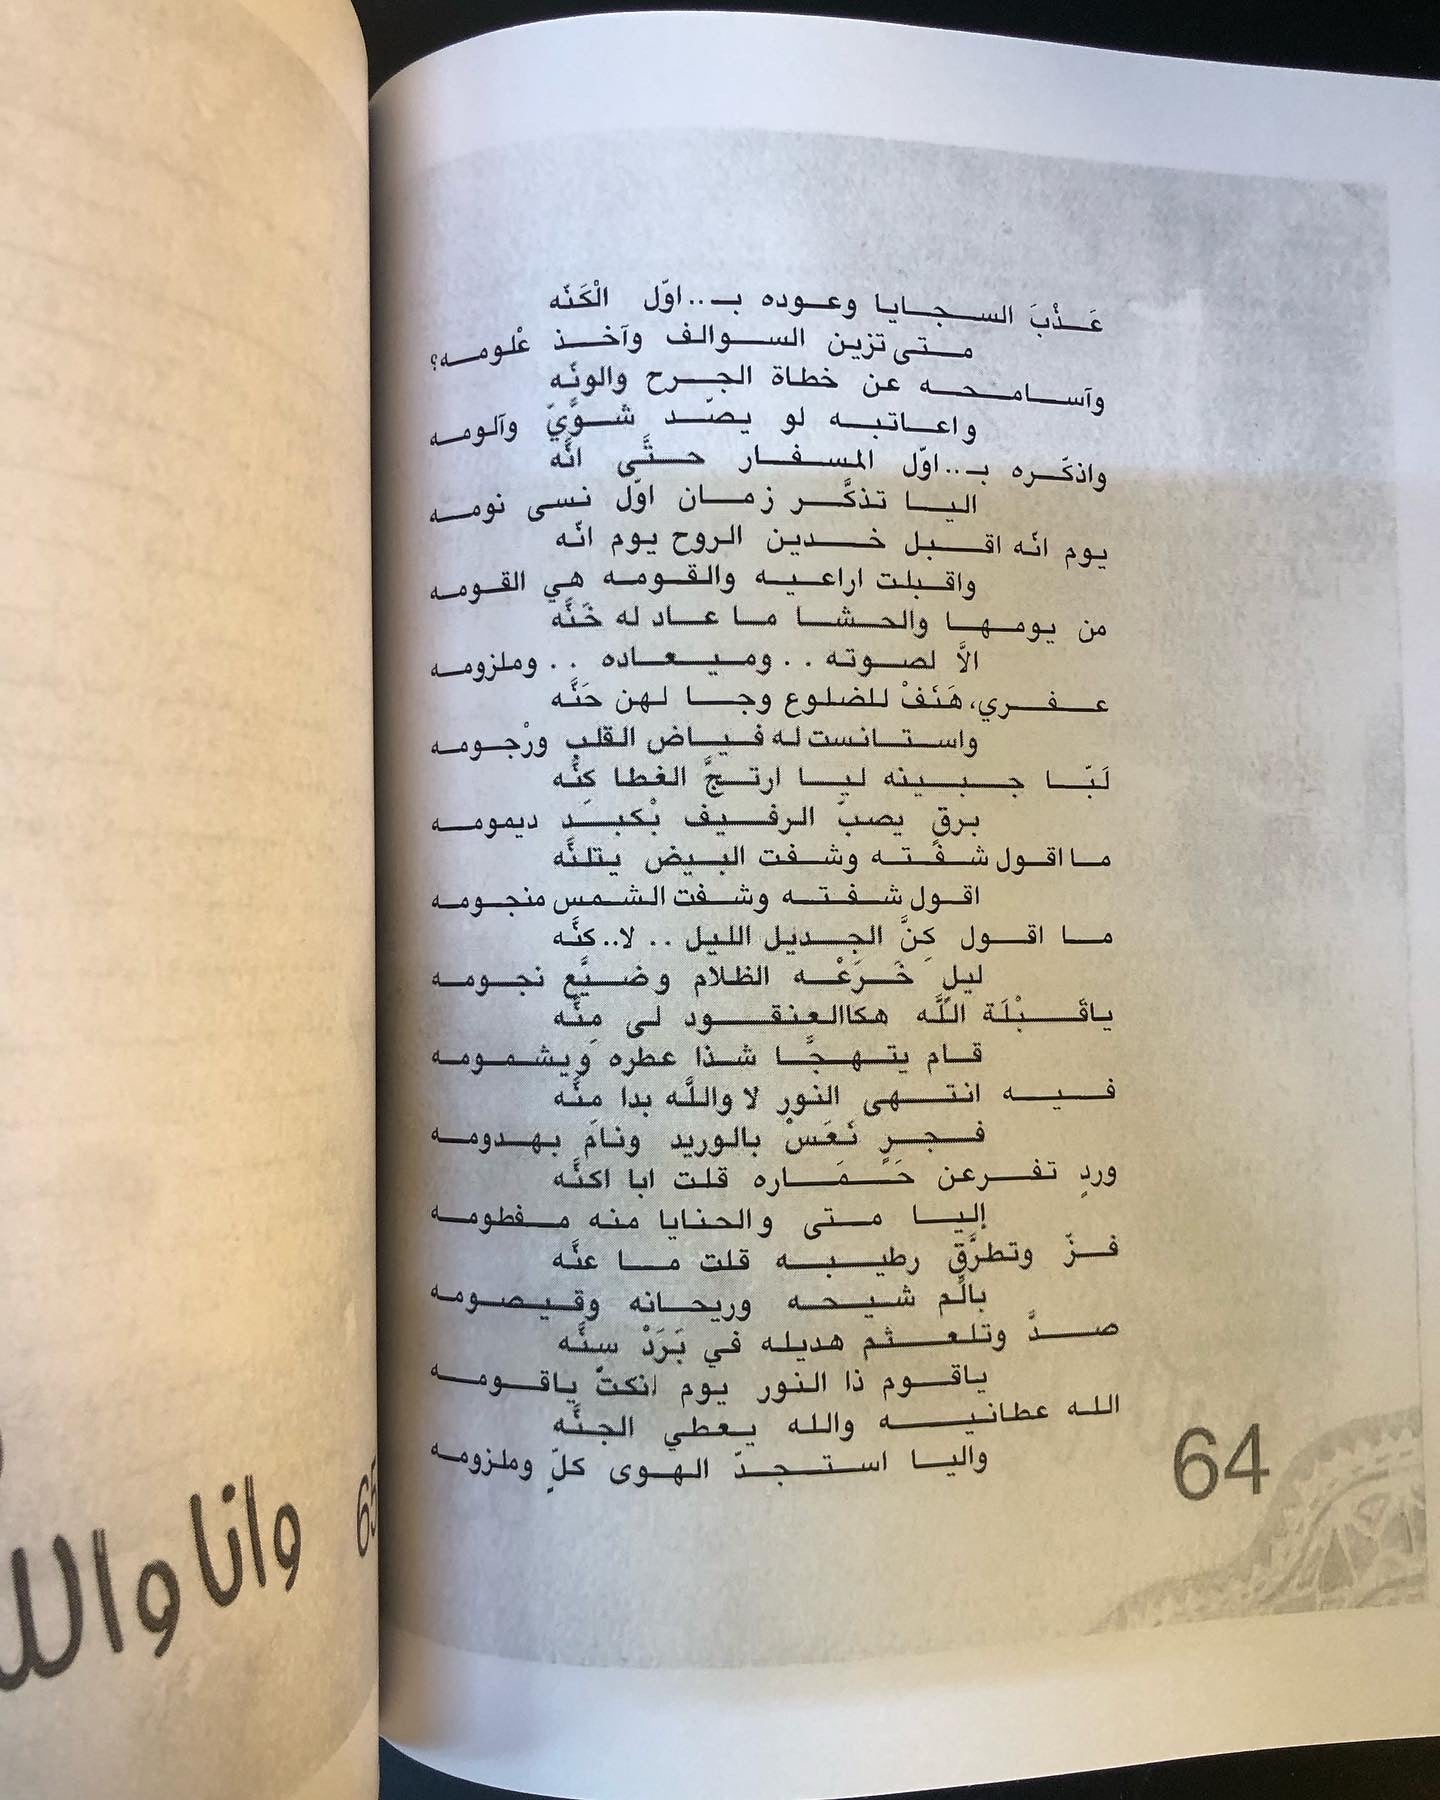 عَـذْبَ السـجـايا وعـوده بـ..اوّل الْكَنّه
مـتى تزين السـوالف وآخـذ عْلومـه؟
وآسـامـحـه عن خطاة الجـرح والونّه
واعـاتبـه لو يصّـد شـوَيّ وآلومـه
واذكَـره بـ..اوّل المسـفـار حـتَّى انَّه
اليـا تذكَّـر زمـان اوّل نسى نومـه
يوم انّه اقـبـل خـدين الروح يوم انّه
واقـبلت اراعـيـه والقـومـه هي القـومـه
من يومـهـا والحـشـا مـا عـاد له خَنَّه
الاَّ لصـوته . . ومـيـعـاده . . وملزومـه
عـفـري، هَنَفْ للضلوع وجـا لهن حَنَّه
واسـتـانست له فـيـاض القلب ورْجـومـه
لَبّـا جـبـينه ليـا ارتـجَّ الغطا كِنَّه
برقٍ يصبّ الرفـيف بْكبـد ديمومـه
مـا اقـول شـفـتـه وشـفت البـيض يتلنَّه
اقـول شـفـتـه وشـفت الشـمس منجـومـه
مـا اقـول كِنَّ الجـديل الليل . . لا..كنَّه
ليلٍ خَرَعْـه الظلام وضـيَّع نجـومـه
ياقَـبْلَة اللَّه هكاالعنقـود لى مِنَّه
قـام يتـهـجَّـا شـذا عطره ويشـمـومـه
فـيـه انتـهى النور لا واللَّه بدا مِنَّه
فـجـرٍ نَعَسْ بالوريد ونامَ بهـدومـه
وردٍ تفـرعن حَـمَـاره قلت ابا اكنَّه
إليـا مـتى والحنايا منه مـفطومـه
فـزّ وتطرَّق رطيـبـه قلت مـا عنَّه
بالَم شـيـحـه وريحـانه وقـيـصـومـه
صـدَّ وتلعـثـم هديله في بَرَدْ سنَّه
ياقـوم ذا النور يوم انكتّ ياقـومـه
الله عطانيـه والله يـعطي الجنَّه
واليـا اسـتـجـدّ الهـوى كلٍّ وملزومـه
64
65
وانا والل